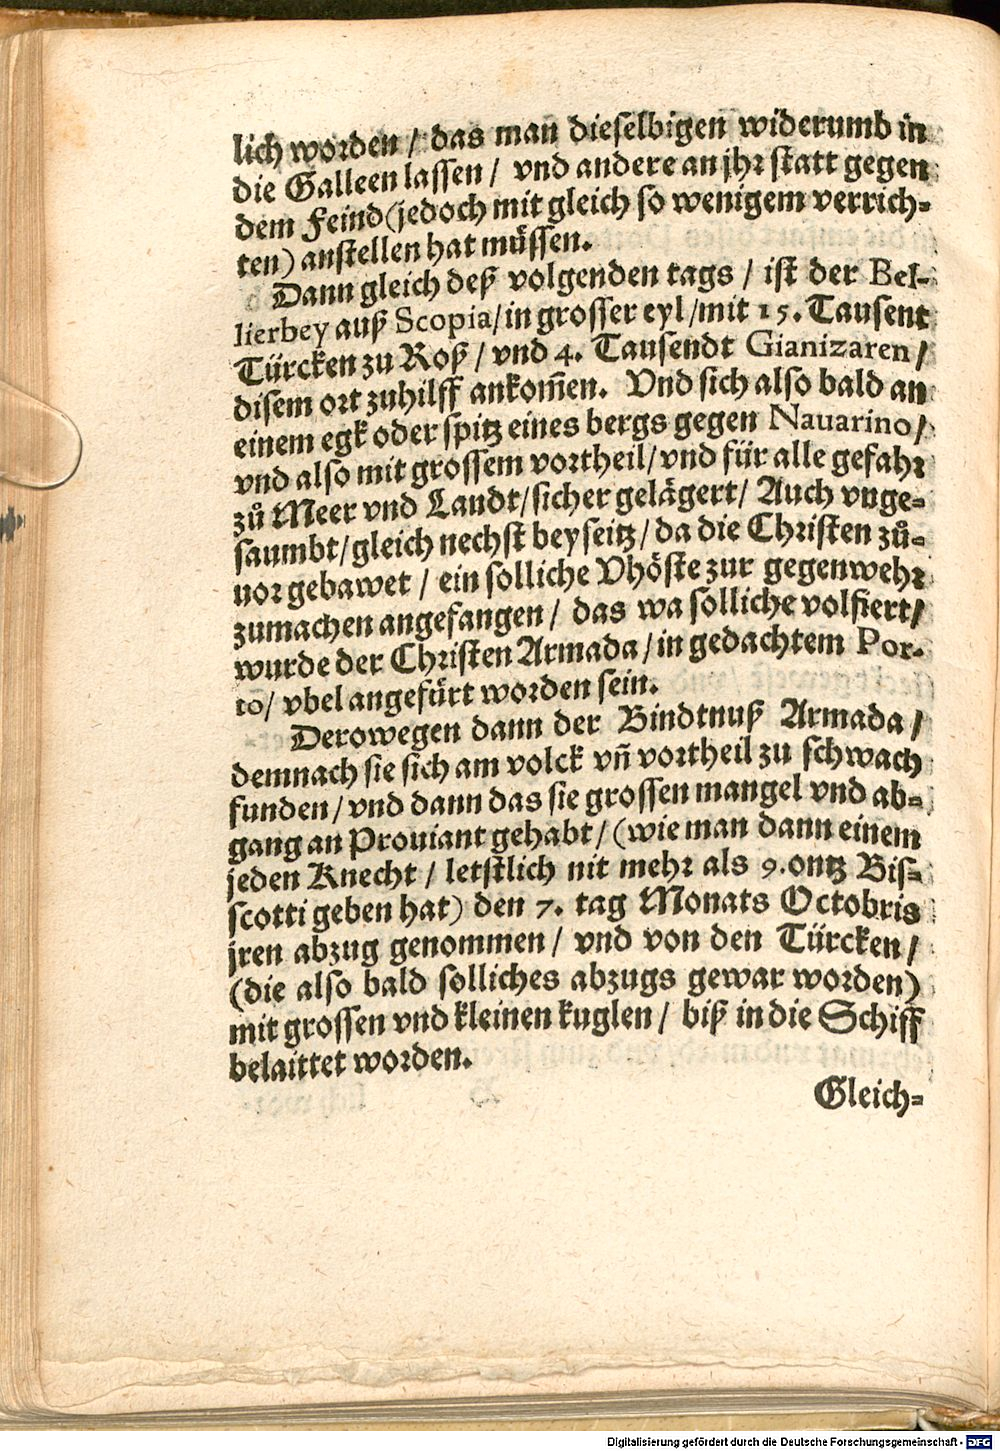 lich worden / das man dieselbigen widerumb in
die Galleen lassen / vnd andere an jhr statt gegen
dem Feind (jedoch mit gleich so wenigem verrich-
ten) anstellen hat müssen.
Dann gleich deß volgenden tags / ist der Bel-
lierbey auß Scopia / in grosser eyl / mit 15. Tausent
Türcken zu Roß / vnd 4. Tausendt Gianizaren /
disem ort zuhilff ankom̄en. Vnd sich also bald an
einem egk oder spitz eines bergs gegen Nauarino /
vnd also mit grossem vortheil / vnd für alle gefahr
zů Meer vnd Landt / sicher gelägert / Auch vnge-
saumbt / gleich nechst bey seitz / da die Christen zů-
uor gebawet / ein solliche Vhöste zur gegenwehr
zumachen angefangen / das wa solliche volfiert /
wurde der Christen Armada / in gedachtem Por-
to / vbel angefürt worden sein.
Derowegen dann der Bindtnuß Armada /
demnach sie sich am volck vñ vortheil zu schwach
funden / vnd dann das sie grossen mangel vnd ab-
gang an Prouiant gehabt / (wie man dann einem
jeden Knecht / letstlich nit mehr als 9. ontz Bis-
scotti geben hat) den 7. tag Monats Octobris
jren abzug genommen / vnd von den Türcken /
(die also bald solliches abzugs gewar worden)
mit grossen vnd kleinen kuglen / biß in die Schiff
belaittet worden.
Gleich-
Digitalisierung gefördert durch die Deutsche Forschungsgemeinschaft - DFG